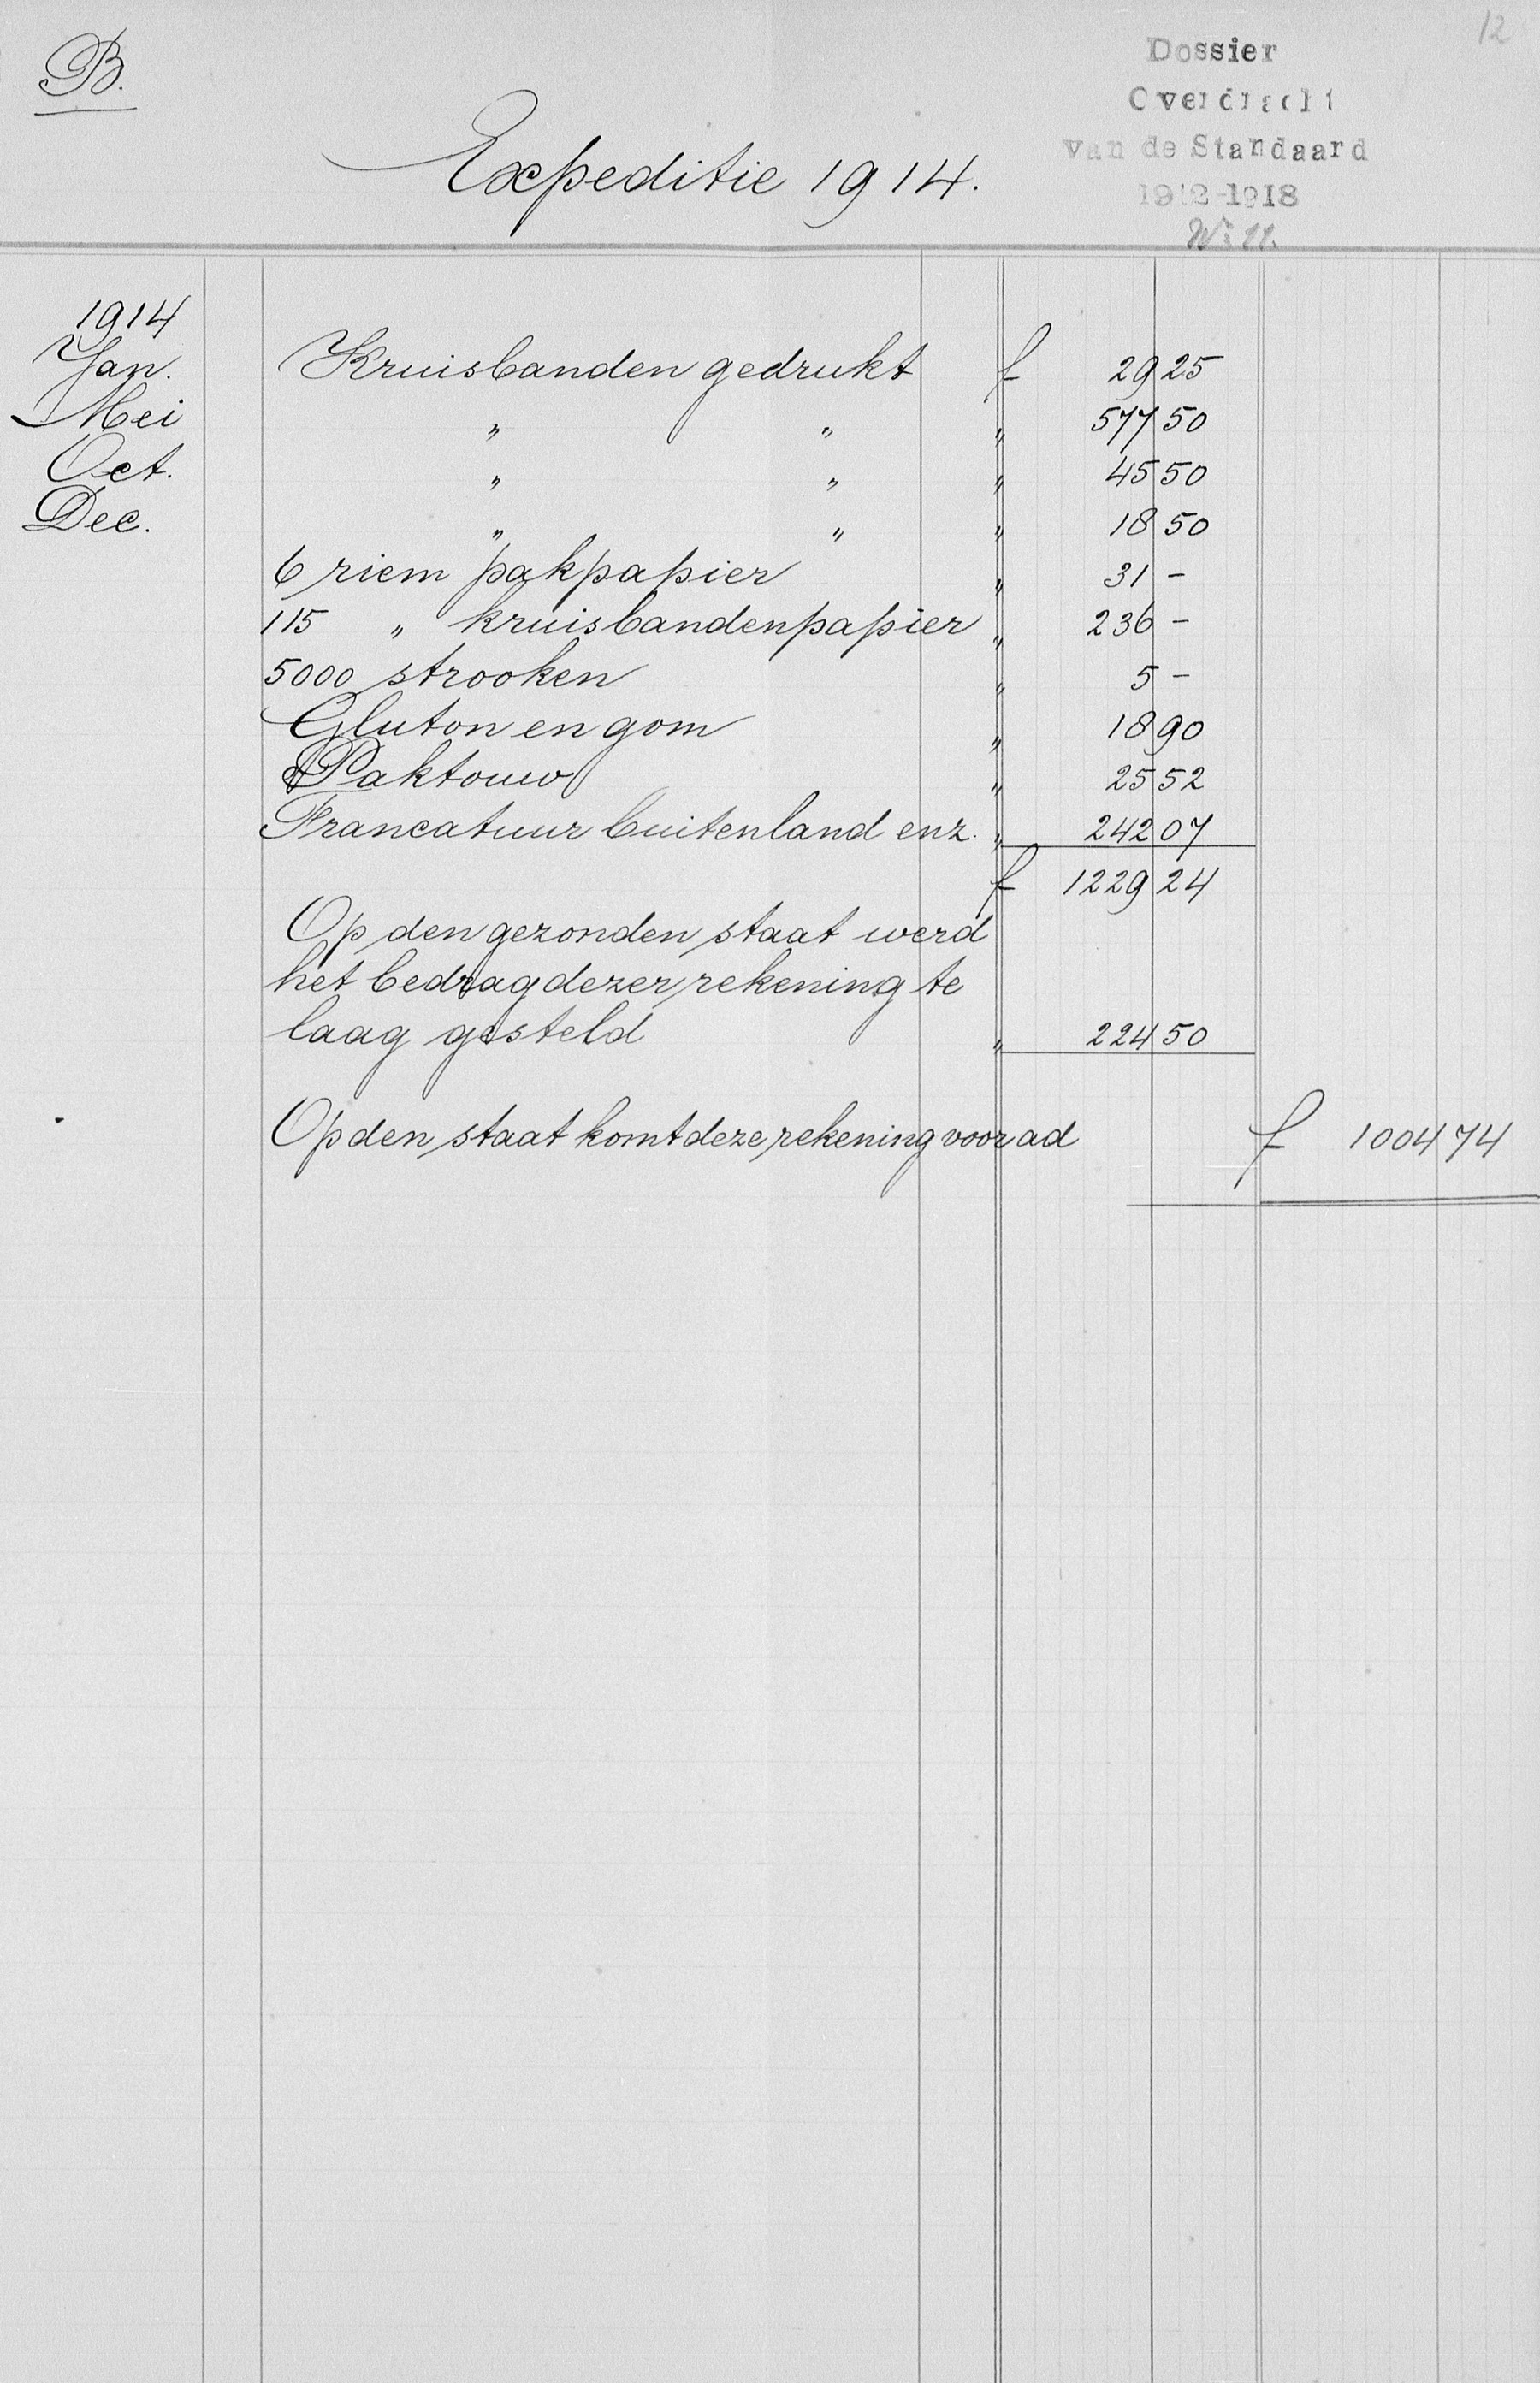 12
B.
Dossier
Overdracht
van de Standaard
1912-1918
No 11.
Expeditie 1914.
1914
Jan. Kruisbanden gedrukt f 29 25
Mei " " " 577 50
Oct. " " " 45 50
Dec. " " " 18 50
6 riem pakpapier " 31 -
115 " kruisbandenpapier " 236 -
5000 strooken " 5 -
Gluton en gom " 18 90
Paktouw " 25 52
Francatuur buitenland enz. " 242 07
f 1229 24
Op den gezonden staat werd
het bedrag dezer rekening te
laag gesteld " 224 50
Op den staat komt deze rekening voor ad f 1004 74